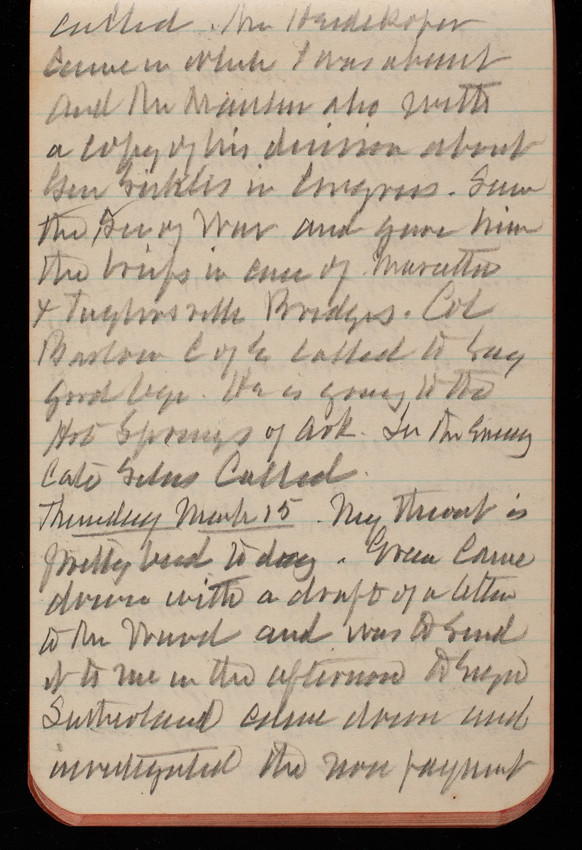 called. Mr Heidekoper
came in while I was absent
and Mr Mauser also with
a copy of his decision about
Gen Sickles in Congress. Saw
the Sec of War and gave him
the briefs in case of Marietta
& Taylorsville Bridges. Col
Barlow C of E called to say
good bye. He is going to the
Hot Springs of Ark. In the Evening
Cate Called.
Thursday March 15. My throat is
pretty bad to day. Green Came
down with a draft of a letter
to Mr Wood and was to Send
it to me in the afternoon to Sign
Sutherland came down and
investigated the non payment